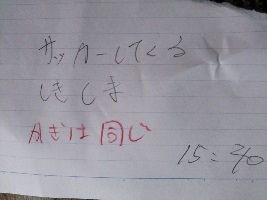 サッカーしてくる
しきしま
かぎは同じ
15:40